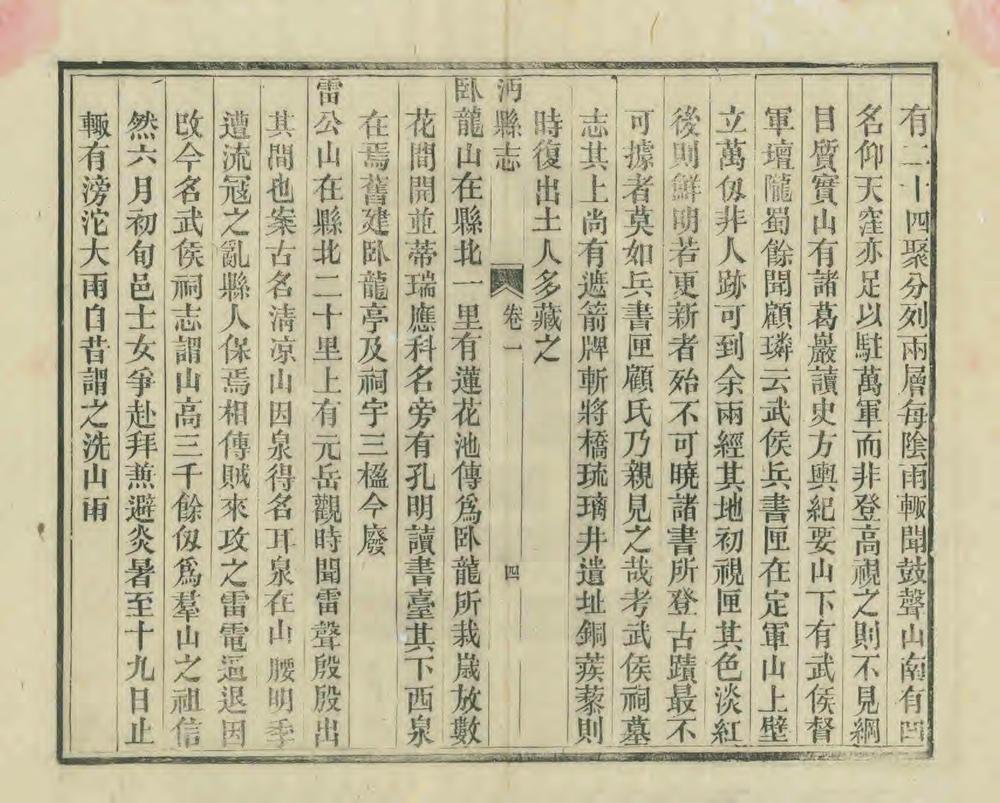 有二十四聚分列兩層每陰雨輙聞鼓聲山南有凹
名仰天窪亦足以駐萬軍而非登高視之則不見綱
目質實山有諸葛巖讀史方輿紀要山下有武侯督
軍壇隴蜀餘聞顧璘云武侯兵書匣在定軍山上壁
立萬仭非人跡可到余兩經其地初視匣其色淡紅
後則鮮明若更新者殆不可曉諸書所登古蹟最不
可據者莫如兵書匣顧氏乃親見之哉考武侯祠墓
志其上尚有遮箭牌斬將橋琉璃井遺址銅蒺藜則
時復出土人多藏之
沔縣志
卷一
四
卧龍山在縣北一里有蓮花池傳爲卧龍所栽歲放數
花間開並蒂瑞應科名旁有孔明讀書臺其下西泉
在焉舊建卧龍亭及祠宇三楹今廢
雷公山在縣北二十里上有元岳觀時聞雷聲殷殷出
其間也案古名清凉山因泉得名耳泉在山腰明季
遭流冦之亂縣人保焉相傳賊來攻之雷電逼退因
改今名武侯祠志謂山高三千餘仭爲羣山之祖信
然六月初旬邑士女爭赴拜薫避炎暑至十九日止
輙有滂沱大雨自昔謂之洗山雨